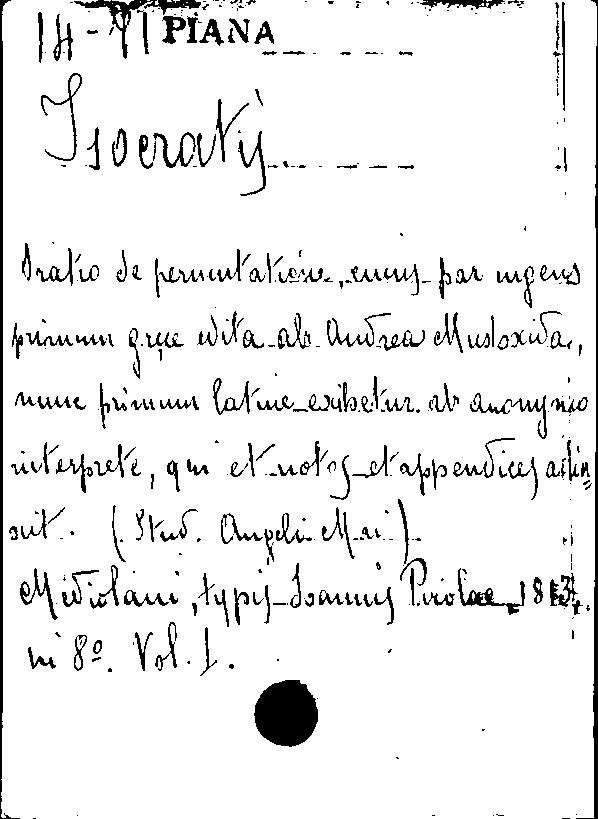 14-91 PIANA
Isocratis
Oratio de permutatione, cuius par ingens
primum grece edita ab Andrea Mustoxida,
nunc primum latine exibetur ab anonymo
interprete, qui et notas et appendices adiun=
xit. (Stud. Angeli Mai).
Mediolani, typis Ioannis Pirolae, 1813.
in 8º. Vol. I.